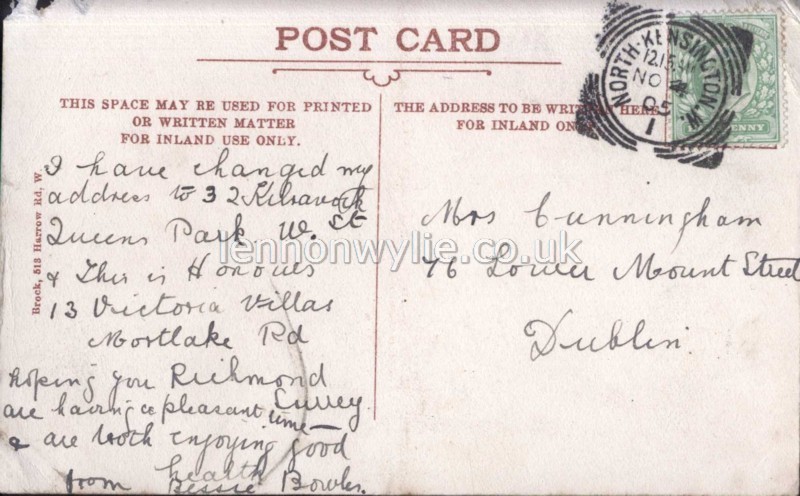 POST CARD
THIS SPACE MAY BE USED FOR PRINTED
OR WRITTEN MATTER
FOR INLAND USE ONLY.
I have changed my
address to 32 Kilravock
St
Queens Park W.
& This is Honoues
13 Victoria Villas
Mortlake Rd
Richmond
Surrey
Hoping you
are having a pleasant time
& are both enjoying good
health
from Bessie Bowles.
Brock, 513 Harrow Rd, W.
THE ADDRESS TO BE WRITTEN HERE
FOR INLAND ONLY
Mrs Cunningham
76 Lower Mount Street
Dublin.
NORTH-KENSINGTON.W.
12.15
NO 4
05
1
PENNY
lennonwylie.co.uk